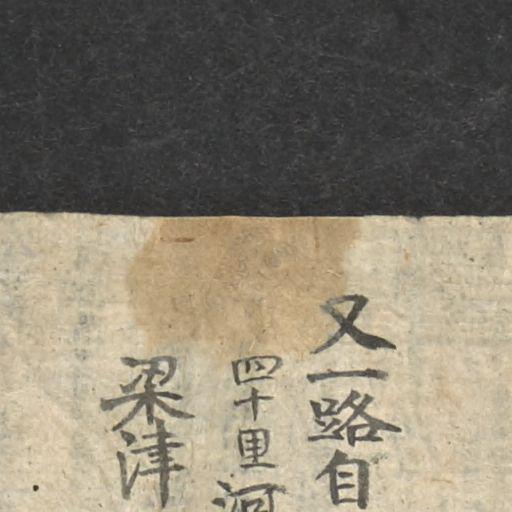 又一路自
四十里河
梁津